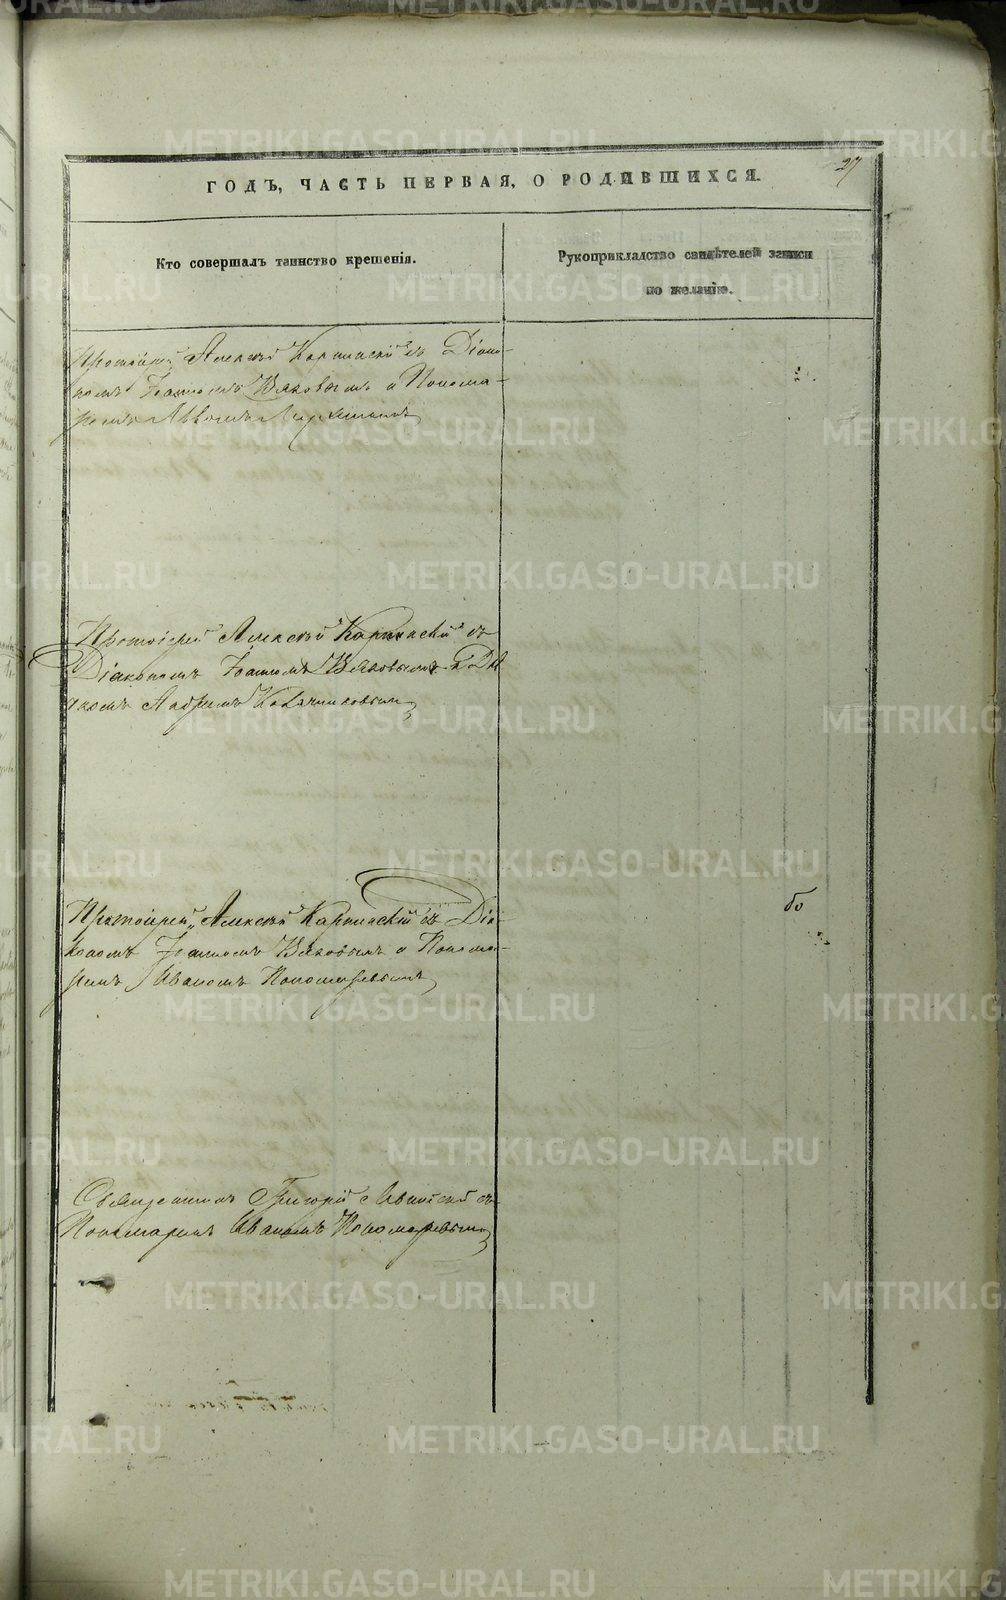 27
ГОДЪ, ЧАСТЬ ПЕРВАЯ, О РОДИВШИХСЯ.
Кто совершалъ таинство крещенія.
Рукоприкладство свидѣтелей записи
по желанію.
Протоіерей Алексѣй Карпинскій съ Діако-
номъ Іоанномъ Вяковымъ и Понома-
ремъ
Протоіерей Алексѣй Карпинскій съ
Діакономъ Іоанномъ Вяковымъ и Дья
чкомъ
Протоіерей Алексѣй Карпинскій съ Діа-
кономъ Іоанномъ Вяковымъ и Понома-
ремъ Иваномъ Пономаревымъ
Священникъ Григорій съ
Пономаремъ Иваномъ Пономаревымъ
METRIKI.GASO-URAL.RU